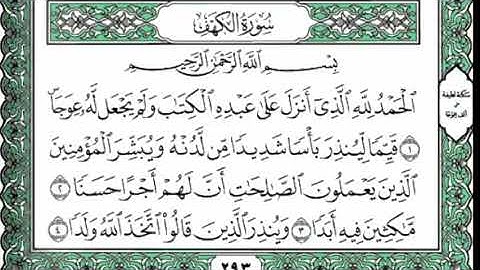 سُورَةُ الكَهْفِ
بِسْمِ ٱللَّهِ ٱلرَّحْمَٰنِ ٱلرَّحِيمِ
ٱلْحَمْدُ لِلَّهِ ٱلَّذِىٓ أَنزَلَ عَلَىٰ عَبْدِهِ ٱلْكِتَٰبَ وَلَمْ يَجْعَل لَّهُۥ عِوَجَاۜ
۝١ قَيِّمًا لِّيُنذِرَ بَأْسًا شَدِيدًا مِّن لَّدُنْهُ وَيُبَشِّرَ ٱلْمُؤْمِنِينَ
ٱلَّذِينَ يَعْمَلُونَ ٱلصَّٰلِحَٰتِ أَنَّ لَهُمْ أَجْرًا حَسَنًا ۝٢
مَّٰكِثِينَ فِيهِ أَبَدًا ۝٣ وَيُنذِرَ ٱلَّذِينَ قَالُوا۟ ٱتَّخَذَ ٱللَّهُ وَلَدًا ۝٤
سكتة لطيفة
على
ألف عِوَجَا
٢٩٣